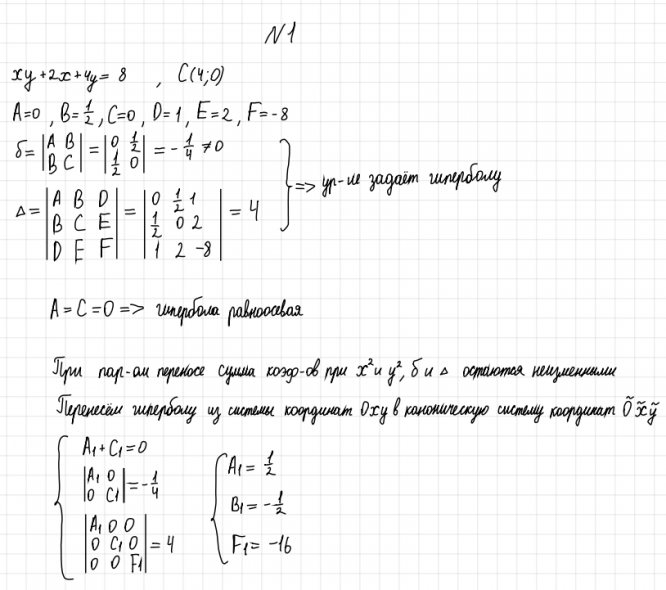 N1
xy+2x+4y=8 , C(4;0)
A=0 , B=1/2 , C=0, D=1, E=2, F=-8
δ= |A B; B C| = |0 1/2; 1/2 0| = -1/4 ≠0
Δ= |A B D; B C E; D E F| = |0 1/2 1; 1/2 0 2; 1 2 -8| = 4
} => ур-ие задаёт гиперболу
A=C=0 => гипербола равноосевая
При пар-ом переносе сумма коэф-ов при x² и y², δ и Δ остаются неизменными
Перенесём гиперболу из системы координат Oxy в каноническую систему координат Õx̃ỹ
{ A₁+C₁=0
|A₁ 0; 0 C₁| = -1/4
|A₁ 0 0; 0 C₁ 0; 0 0 F₁| = 4
{ A₁= 1/2
B₁= -1/2
F₁= -16